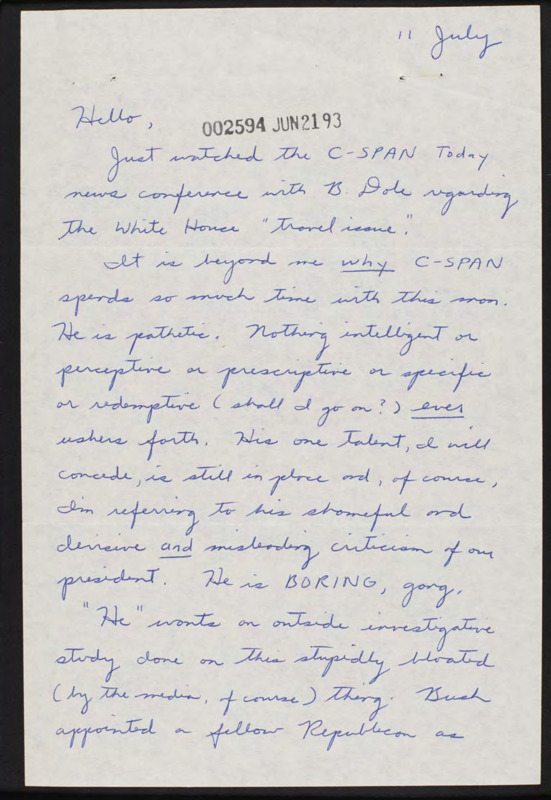 11 July
Hello,
002594 JUN2193
Just watched the C-SPAN Today
news conference with B. Dole regarding
the White House "travel issue".
It is beyond me why C-SPAN
spends so much time with this man.
He is pathetic. Nothing intelligent or
perceptive or prescriptive or specific
or redemptive (shall I go on?) ever
ushers forth. His one talent, I will
concede, is still in place and, of course,
I'm referring to his shameful and
derisive and misleading criticism of our
president. He is BORING, gang.
"He" wants an outside investigative
study done on this stupidly bloated
(by the media, of course) thing. Bush
appointed a fellow Republican as